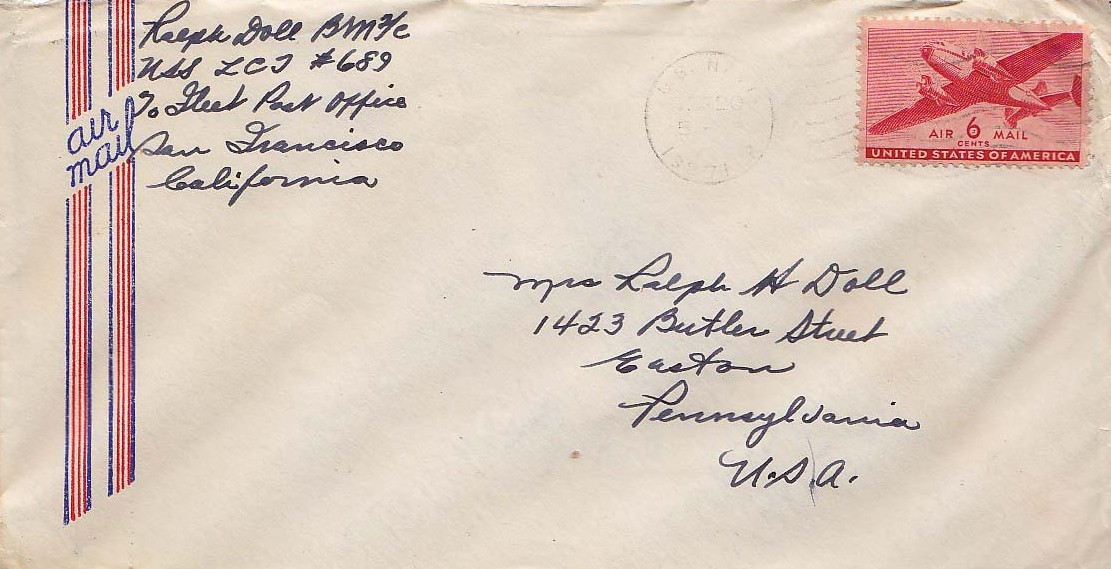 Ralph Doll BM2/c
USS LCT #689
To Fleet Post Office
San Francisco
California
air
mail
AIR 6 MAIL
CENTS
UNITED STATES OF AMERICA
Mrs Ralph H Doll
1423 Butler Street
Easton
Pennsylvania
U.S.A.